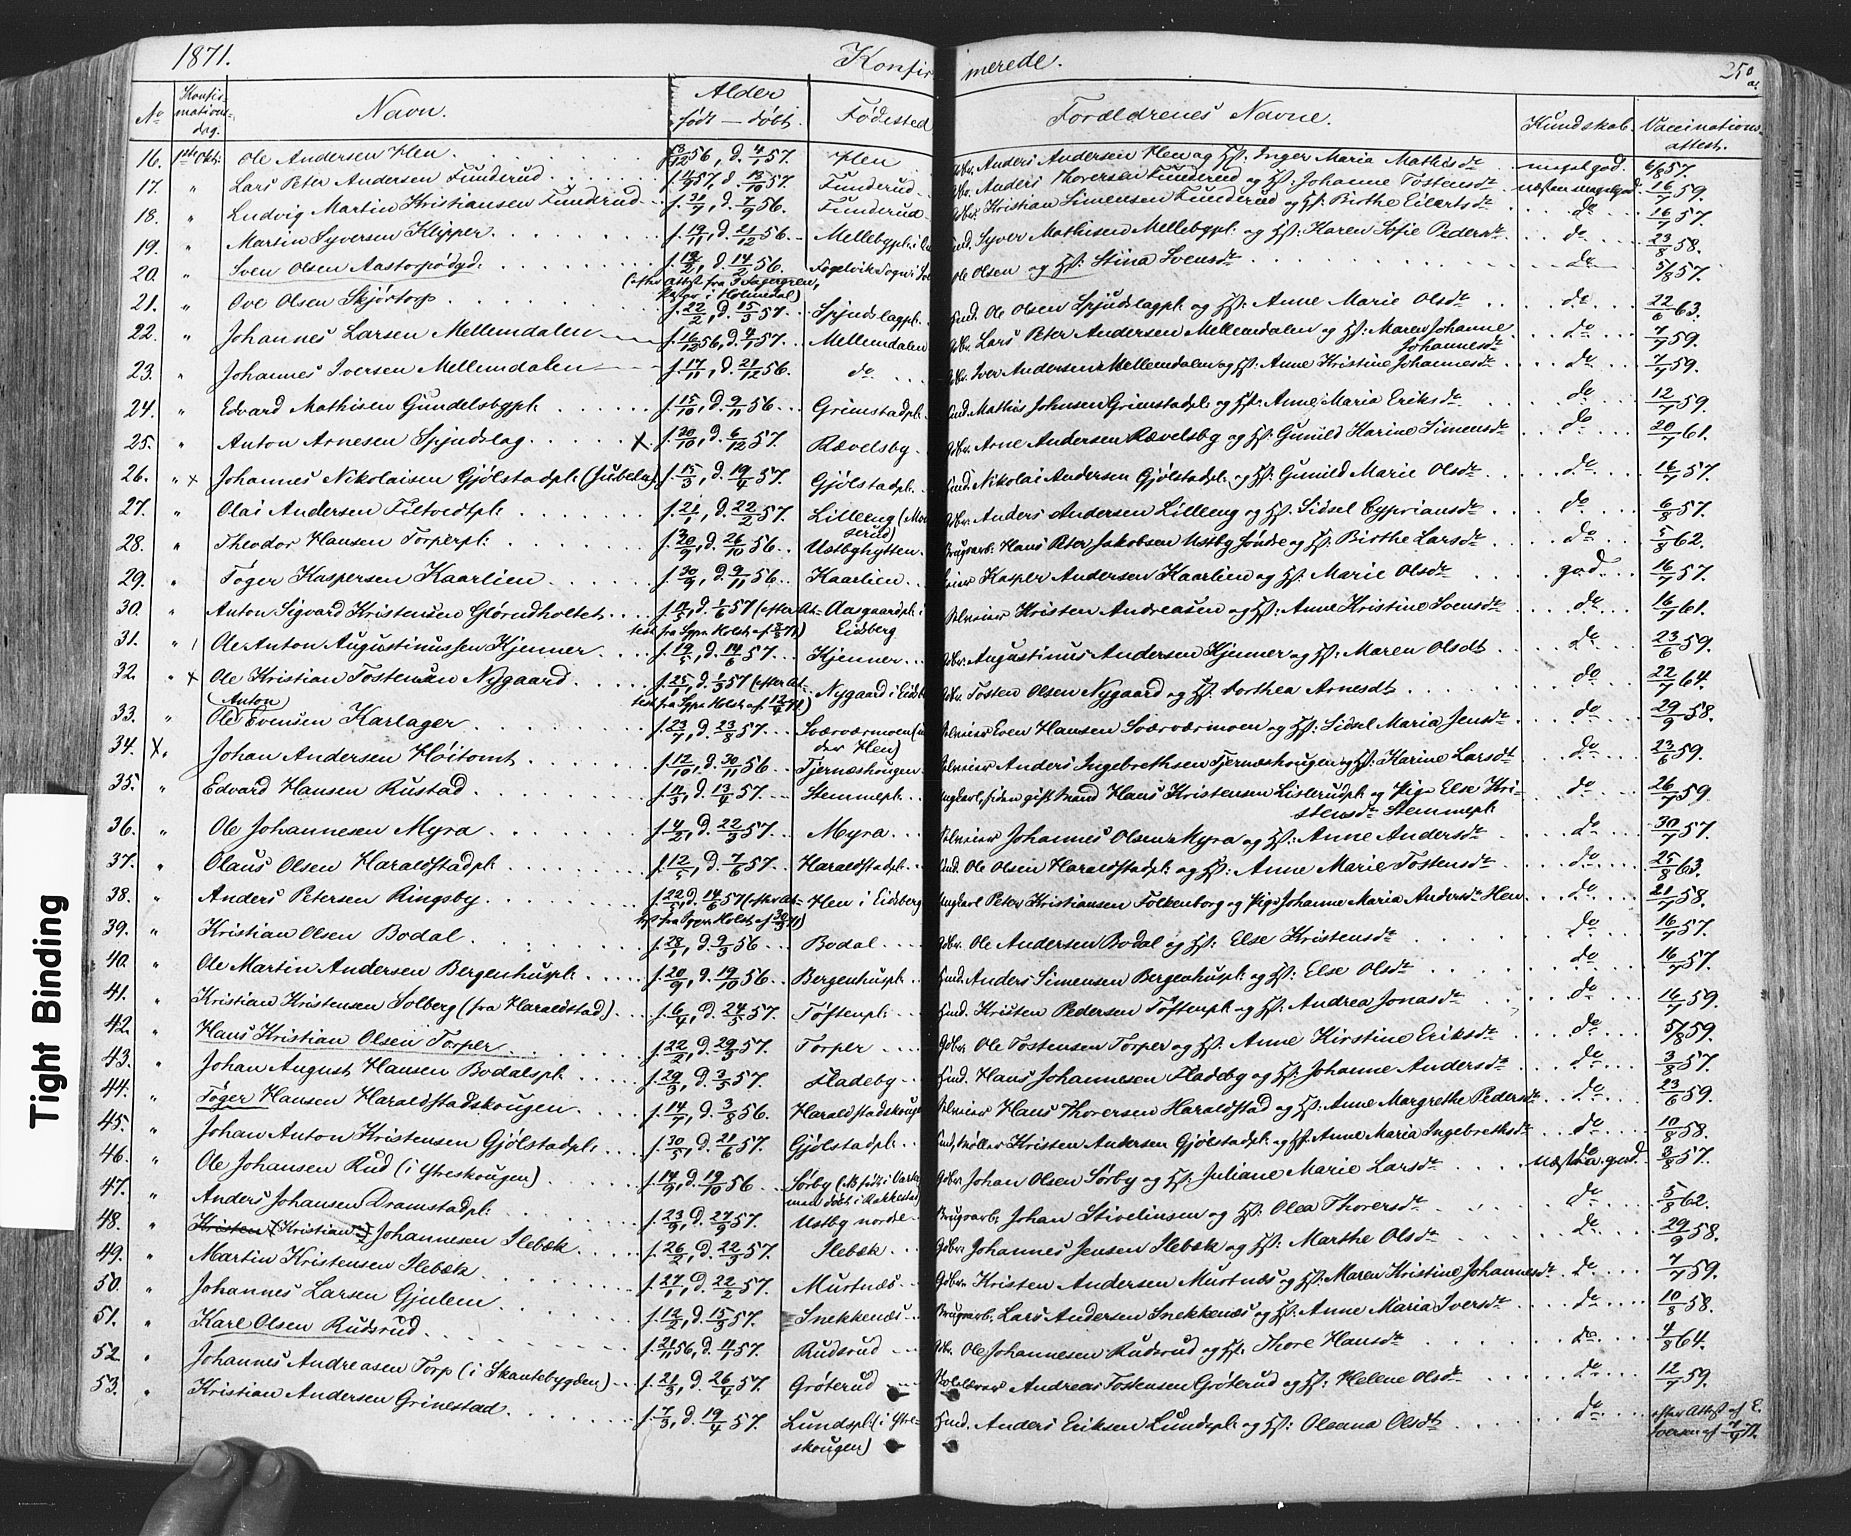 1871. Konfirmerede. 250
No Konfirmationsdag. Navn. Alder født — døbt. Fødested Forældrenes Navne. Kundskab. Vaccinationsattest.
16. 1ste Okt. Ole Andersen Hen f. 56, d. 4/1 57. Hen Gbr. Anders Andersen Hen og Hst. Inger Maria Mathisdr. meget god. 6/8 57.
17. " Lars Peter Andersen Funderud f. 14/9 57, d. 18/10 57. Funderud Gbr. Anders Thoresen Funderud og Hst. Johanne Tostensdr. næsten meget god. 16/7 59.
18. " Ludvig Martin Kristiansen Funderud f. d. 7/9 56. Funderud Gbr. Kristian Simensen Funderud og Hst. Birthe Eilertsdr. do 16/7 57.
19. " Martin Syversen Klypper f. 19/11, d. 21/12 56. Mellebypl. Hmd. Syver Mathisen Mellebypl. og Hst. Karen Sofie Pedersdr. do 23/8 58.
20. " Sven Olsen Aastorpødgd. f. 13/2, d. 14/2 56. Fogelvik Sogn i Ole Olsen og Hst. Stina Svensdr. do 5/8 57.
(efter attest fra Pastor i Holmedal)
21. " Ove Olsen Skjørtorp f. 22/2, d. 15/3 57. Spjudslagpl. Hmd. Ole Olsen Spjudslagpl. og Hst. Anne Marie Olsdr. do 22/6 63.
22. " Johannes Larsen Mellemdalen f. 16/12 56, d. 4/1 57. Mellemdalen Gbr. Lars Peter Andersen Mellemdalen og Hst. Maren Johanne Johannesdr. do 7/7 59.
23. " Johannes Iversen Mellemdalen f. 17/11, d. 21/12 56. do Gbr. Iver Andersen Mellemdalen og Hst. Anne Kristine Johannesdr. do 7/7 59.
24. " Edvard Mathisen Gundelsbypl. f. 15/10, d. 9/11 56. Grimstadpl. Hmd. Mathis Johnsen Grimstadpl. og Hst. Anne Maria Eriksdr. do 12/7 59.
25. " Anton Arnesen Spjudslag X f. 20/10, d. 6/12 57. Rævelsby Gbr. Arne Andersen Rævelsby og Hst. Gunild Karine Simensdr. do 20/7 61.
26. " x Johannes Nikolaisen Gjølstadpl. (Jubelen) f. 15/3, d. 19/4 57. Gjølstadpl. Hmd. Nikolai Andersen Gjølstadpl. og Hst. Gunild Marie Olsdr. do 16/7 57.
27. " Olai Andersen Filtvedtpl. f. 21/1, d. 22/2 57. Lilleeng Gbr. Anders Andersen Lilleeng og Hst. Sidsel Cypriansdr. do 6/8 57.
28. " Theodor Hansen Torperpl. f. 20/9, d. 26/10 56. Ustbyhytten Brugsarb. Hans Peter Jakobsen Ustby søndre og Hst. Birthe Larsdr. do 5/8 62.
29. " Tøger Kaspersen Kaarlien f. 30/9, d. 9/11 56. Kaarlien Kasper Andersen Kaarlien og Hst. Marie Olsdr. god. 16/7 57.
30. " Anton Sigvard Kristensen Glørudholtet f. d. 1/6 57 (efter Attest fra Sgpr. Holst af) Aasgaardpl. i Eidsberg Selveier Kristen Andreasen og Hst. Anne Kristine Svensdr. do 16/7 61.
31. " Ole Anton Augustinussen Kjenner f. 19/5, d. 14/6 57. Kjenner Gbr. Augustinus Andersen Kjenner og Hst. Maren Olsdt. do 23/6 59.
32. " x Ole Kristian Tostensen Nygaard f. 25/1, d. 1/3 57 (efter Attest fra Sgpr. Holst af 12/4 71) Nygaard i Eidsb Gbr. Tosten Olsen Nygaard og Hst. Dorthea Arnesdt. do 22/7 64.
33. " Ole Anton Evensen Karlager f. 23/7, d. 23/8 57. Sværværmoen (under Hen) Selveier Even Hansen Sværværmoen og Hst. Sidsel Maria Jensdr. do 29/9 58.
34. X " Johan Andersen Høitomt f. 12/10, d. 30/11 56 Tjernæshougen Selveier Anders Ingebrethsen Tjernæshougen og Hst. Karine Larsdt. do 23/6 59.
35. " Edvard Hansen Rustad f. d. 13/4 57. Stemmepl. Ungkarl, siden gift Mand Hans Kristensen Listerudpl. og Pige Else Kristensdr. Stemmepl. do 26/7 59.
36. " Ole Johannesen Myra f. 4/2, d. 22/3 57. Myra Selveier Johannes Olsen Myra og Hst. Anne Andersdr. do 30/7 57.
37. " Olaus Olsen Haraldstadpl. f. 12/5, d. 7/6 57. Haraldstadpl. Hmd. Ole Olsen Haraldstadpl. og Hst. Anne Marie Tostensdr. do 25/8 63.
38. " Anders Petersen Ringsby f. 22/5, d. 14/6 57 (efter Attest fra Sgpr. Holst af) Hen i Eidsberg Ungkarl Peter Kristiansen Folkenborg og Pige Johanne Maria Andersdr. Hen do 21/7 58.
39. " Kristian Olsen Bodal f. 28/1, d. 9/3 56 Bodal Gbr. Ole Andersen Bodal og Hst. Else Kristensdr. do 16/7 57.
40. " Ole Martin Andersen Bergenhuspl. f. 20/9, d. 19/10 56. Bergenhuspl. Hmd. Anders Simensen Bergenhuspl. og Hst. Else Olsdr. do 16/7 57.
41. " Kristian Kristensen Solberg (fra Haraldstad) f. 6/4, d. 24/5 57. Töftenpl. Hmd. Kristen Pedersen Töftenpl. og Hst. Andrea Jonasdr. do 16/7 59.
42. " Hans Kristian Olsen Torper f. 22/2, d. 29/3 57. Torper Gbr. Ole Tostensen Torper og Hst. Anne Kirstine Eriksdr. do 5/8 59.
43. " Johan August Hansen Bodalspl. f. 29/3, d. 3/5 57. Fladeby Hmd. Hans Johannesen Fladeby og Hst. Johanne Andersdr. do 3/8 57.
44. " Tøger Hansen Haraldstadskougen f. 14/7, d. 3/8 56. Haraldstadskoug Selveier Hans Thoresen Haraldstad og Hst. Anne Margrethe Pedersdr. do 23/6 59.
45. " Johan Anton Kristensen Gjølstadpl. f. 30/5, d. 21/6 57. Gjølstadpl. Hmd. Møller Kristen Andersen Gjølstadpl. og Hst. Anne Maria Ingebrethsdr. do 10/8 58.
46. " Ole Johansen Rud (i Ytreskougen) f. 14/9, d. 19/10 56 Sørby Gbr. Johan Olsen Sørby og Hst. Juliane Marie Larsdr. næsten god. 3/8 57.
47. " Anders Johansen Dramstadpl. f. 23/9, d. 27/9 57. Ustby nordre Brugsarb. Johan Stivelinsen og Hst. Olea Thoresdr. do 5/8 62.
48. " Kristen (Kristian?) Johannesen Slebæk f. 26/2, d. 22/3 57. Slebæk Gbr. Johannes Jensen Slebæk og Hst. Marthe Olsdr. do 29/9 58.
49. " Martin Kristensen Slebæk f. 27/1, d. 22/2 57. Murtnæs Gbr. Kristen Andersen Murtnæs og Hst. Maren Kristine Johannesdr. do 7/7 59.
50. " Johannes Larsen Gjulem f. 12/2, d. 15/3 57. Snekkenæs Brugsarb. Lars Andersen Snekkenæs og Hst. Anne Maria Iversdr. do 10/8 58.
51. " Karl Olsen Rudsrud f. 21/11 56, d. 57. Rudsrud Gbr. Ole Johannesen Rudsrud og Hst. Thore Hansdr. do 4/8 64.
52. " Johannes Andreasen Torp (i Skantebygden) f. 21/3, d. 26/4 57. Grøterud Andreas Tostensen Grøterud og Hst. Helene Olsdr. do 12/7 59.
53. " Kristian Andersen Grinestad f. 7/3, d. 19/4 57. Lundspl. (i Ytreskougen) Hmd. Anders Eriksen Lundspl. og Hst. Oleana Olsdt. do efter Attest af E. Iversen af 71.
Tight Binding